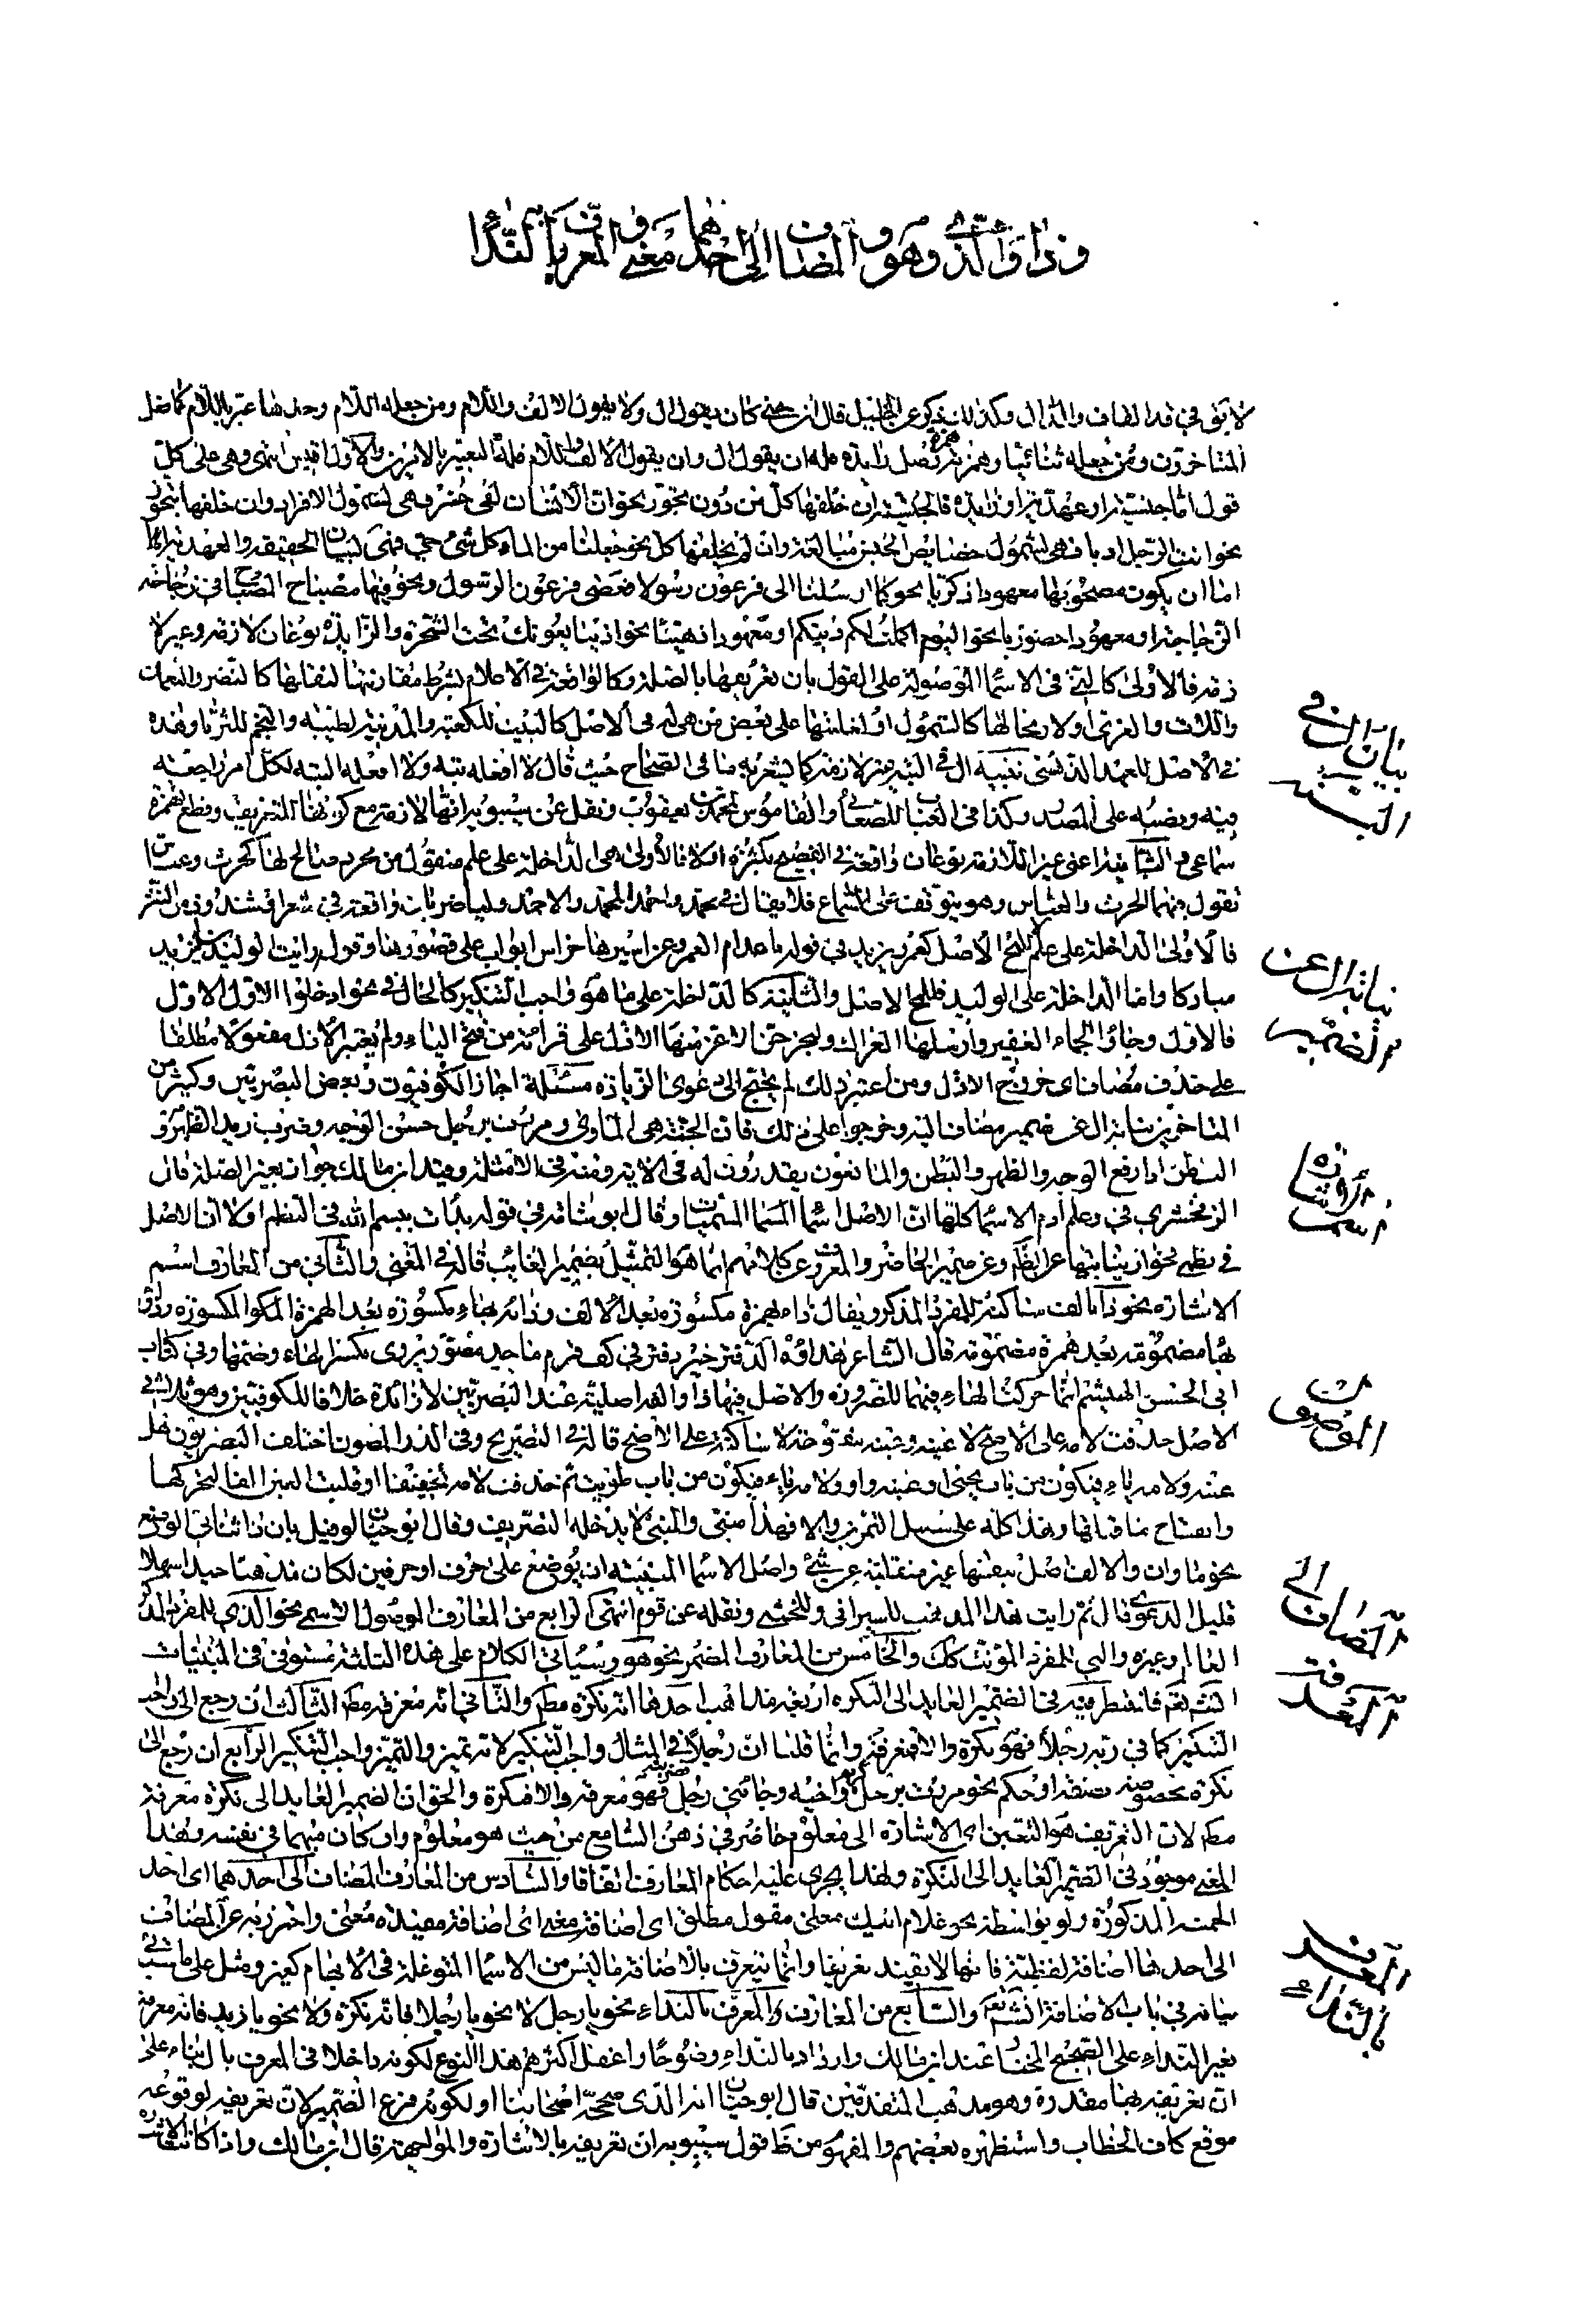 وذا والذي وهو والمضاف الى احدهما معنى والمعرف بالنداء
لا يقال في قد القاف والدال وكذلك ذكر عن الخليل قال ابن جني كان يقول ال ولا يقول الالف واللام ومن جعله اللام وحدها عبر باللام كما فعل
المتاخرون ومن جعله ثنائيا وهمزته همزة وصل زايدة فله ان يقول ال وان يقول الالف واللام فله التعبير بالامرين والاول اقيس انتهى وهي على كل
قول اما جنسية او عهدية او زايدة فالجنسية ان خلفها كل من دون تجوز نحو ان الانسان لفي خسر فهي لشمول الافراد وان خلفها بتجوز
نحو انت الرجل ادبا فهي لشمول خصايص الجنس مبالغة وان لم يخلفها كل نحو وجعلنا من الماء كل شئ حي فهي لبيان الحقيقة والعهدية
اما ان يكون مصحوبها معهودا ذكريا نحو كما ارسلنا الى فرعون رسولا فعصى فرعون الرسول ونحو فيها مصباح المصباح في زجاجة
الزجاجة او معهودا حضوريا نحو اليوم اكملت لكم دينكم او معهودا ذهنيا نحو اذ يبايعونك تحت الشجرة والزايدة نوعان لازمة وغير لا
زمة فالاولى كالتي في الاسما الموصولة على القول بان تعريفها بالصلة وكالواقعة في الاعلام بشرط مقارنتها لنقلها كالنضر والنعمان
واللات والعزى او لارتجالها كالسموءل او لغلبتها على بعض من هي له في الاصل كالبيت للكعبة والمدينة لطيبة والنجم للثريا وهذه
في الاصل للعهد الذهني تنبيه ال في البتة لازمة كما يشعر به ما في الصحاح حيث قال لا افعله بتة ولا افعله البتة لكل امر لا رجعة
فيه ونصبه على المصدر وكذا في العباب للصغاني والقاموس لمحمد بن يعقوب ونقل عن سيبويه انها لازمة مع كونها للتعريف وقطع همزة
سماعي والثانية اعني غير اللازمة نوعان واقعة في الفصيح بكثرة او لا فالاولى هي الداخلة على علم منقول من مجرد صالح لها كحرث وعباس
تقول فيهما الحرث والعباس وهو يتوقف على السماع فلا يقال في محمد واحمد المحمد والاحمد والثانية ضربان واقعة في شعر او في شذوذ من النثر
فالاولى الداخلة على علم للمح الاصل كعمرو ويزيد في قوله باعد ام العمرو عن اسيرها حراس ابواب على قصورها وقوله رايت الوليد بن اليزيد
مباركا واما الداخلة على الوليد فللمح الاصل والثانية كالداخلة على ما هو واجب التنكير كالحال في نحو ادخلوا الاول الاول
فالاول وجاؤا الجماء الغفير وارسلها العراك وليخرجن الاعز منها الاذل على قراءة من فتح الياء ولم يعتبر الاذل مفعولا مطلقا
على حذف مضاف اي خروج الاذل ومن اعتبر ذلك لم يحتج الى دعوى الزيادة مسئلة اجاز الكوفيون وبعض البصريين وكثير من
المتاخرين نيابة ال عن ضمير مضاف اليه وخرجوا على ذلك فان الجنة هي الماوى ومررت برجل حسن الوجه وضرب زيد الظهر و
البطن اذا رفع الوجه والظهر والبطن والمانعون يقدرون له في الاية ومنه في الامثلة وقيد ابن مالك جوازه بغير الصلة وقال
الزمخشري في وعلم ادم الاسما كلها ان الاصل اسما المسميات وقال ابو شامة في قوله بدات ببسم الله في النظم اولا ان الاصل
في نظمي فجوز نيابتها عن الظاهر وعن ضمير الحاضر والمعروف من كلامهم انما هو التمثيل بضمير الغائب قاله في المغني والثاني من المعارف اسم
الاشارة نحو ذا بالف ساكنة للمفرد المذكر ويقال ذاء بهمزة مكسورة بعد الالف وذائه بهاء مكسورة بعد الهمزة المكسورة وذاؤه
بهاء مضمومة بعد همزة مضمومة قال الشاعر هذاؤه الدفتر خير دفتر في كف قرم ماجد مصور يروى بكسر الهاء وضمها وفي كتاب
ابي الحسن الهيثم انما حركت الهاء فيهما للضرورة والاصل فيها ذا والفه اصلية عند البصريين لا زائدة خلافا للكوفيين وهو ثلاثي
الاصل حذفت لامه على الاصح لا عينه وعينه مفتوحة لا ساكنة على الاصح قاله في التصريح وفي الدر المصون اختلف البصريون هل
عينه ولامه ياء فيكون من باب حيي او عينه واو ولامه ياء فيكون من باب طويت ثم حذفت لامه تخفيفا او قلبت العين الفا لتحركها
وانفتاح ما قبلها وهذا كله على سبيل التمرين والا فهذا مبني والمبني لا يدخله التصريف وقال ابو حيان لو قيل بان ذا ثنائي الوضع
نحو ما وان والالف اصل بنفسها غير منقلبة عن شئ واصل الاسما المبنية ان يوضع على حرف او حرفين لكان مذهبا جيدا سهلا
قليل الدعوى قال ثم رايت هذا المذهب للسيرافي وللخشني ونقله عن قوم انتهى الرابع من المعارف الموصول الاسمي نحو الذي للمفرد المذكر
العاقل وغيره والتي للمفرد المؤنث كذلك والخامس من المعارف المضمر نحو هو وسياتي الكلام على هذه الثلثة مستوفى في المبنيات
التنكير كما في ربه رجلا فهو نكرة والا فمعرفة وانما قلنا ان رجلا في المثال واجب التنكير لانه تمييز والتمييز واجب التنكير الرابع ان رجع الى
نكرة مخصوصة بصفة او حكم نحو مررت برجل كريم واخيه وجاءني رجل فضربته فهو معرفة والا فنكرة والحق ان الضمير العايد الى نكرة معرفة
مطلقا لان التعريف هو التعيين اي الاشارة الى معلوم حاضر في ذهن السامع من حيث هو معلوم وان كان مبهما في نفسه وهذا
المعنى موجود في الضمير العايد الى النكرة ولهذا يجري عليه احكام المعارف اتفاقا والسادس من المعارف المضاف الى احدهما اي احد
الخمسة المذكورة ولو بواسطة نحو غلام ابيك معنى مفعول مطلق اي اضافة معنى اي اضافة مفيدة معنى واحترز به عن المضاف
الى احدها اضافة لفظية فانها لا تفيد تعريفا وانما يتعرف بالاضافة ما ليس من الاسما المتوغلة في الابهام كغير ومثل على ما سيأتي
بيانه في باب الاضافة انشاء الله تعالى والسابع من المعارف المعرف بالنداء نحو يا رجل لا نحو يا رجلا فانه نكرة ولا نحو يا زيد فانه معرفة
بغير النداء على الصحيح المختار عند ابن مالك وازداد بالنداء وضوحا واغفل اكثرهم هذا النوع لكونه داخلا في المعرف بال بناء على
ان تعريفه بها مقدرة وهو مذهب المتقدمين قال ابو حيان انه الذي صححه اصحابنا او لكونه فرع الضمير لان تعريفه لوقوعه
موقع كاف الخطاب واستظهره بعضهم والمفهوم من ظاهر قول سيبويه ان تعريفه بالاشارة والمواجهة قال ابن مالك واذا كانت الاشارة
بيان ال في
البتة
نيابة ال عن
الضمير
اسم
الاشارة
الموصول
المضاف الى
المعرفة
المعرف
بالنداء